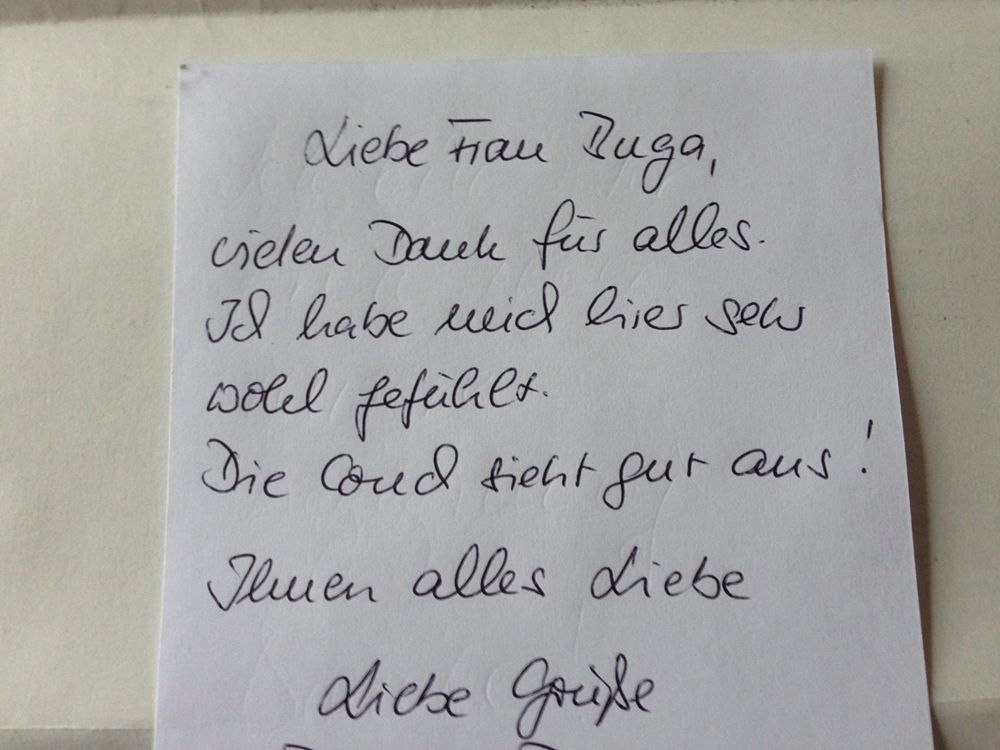 Liebe Frau Duga,
vielen Dank für alles.
Ich habe mich hier sehr
wohl gefühlt.
Die Couch sieht gut aus!
Ihnen alles Liebe
Liebe Grüße